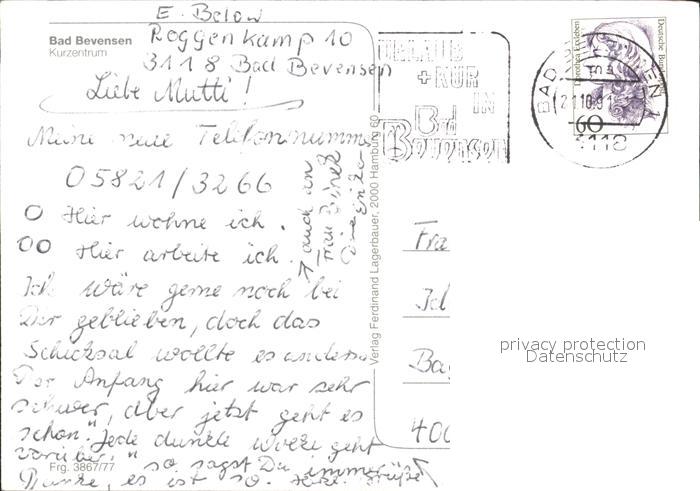 E. Below
Roggenkamp 10
3118 Bad Bevensen
Bad Bevensen
Kurzentrum
Liebe Mutti!
Meine neue Telefonnummer
05821/3266
O Hier wohne ich.
OO Hier arbeite ich.
auch an
Frau
Ich wäre gerne noch bei
Dir geblieben, doch das
Schicksal wollte es anders.
Der Anfang hier war sehr
schwer, aber jetzt geht es
schon. "Jede dunkle Wolke geht
vorüber," so sagst Du immer
Danke, es ist so. Grüße
Frg. 3867/77
Verlag Ferdinand Lagerbauer, 2000 Hamburg 60
URLAUB
+ KUR
IN
Bad
Bevensen
BAD BEVENSEN
21.10.91
3118
Dorothea Erxleben
Deutsche Bundespost
60
Fra
Ba
400
privacy protection
Datenschutz